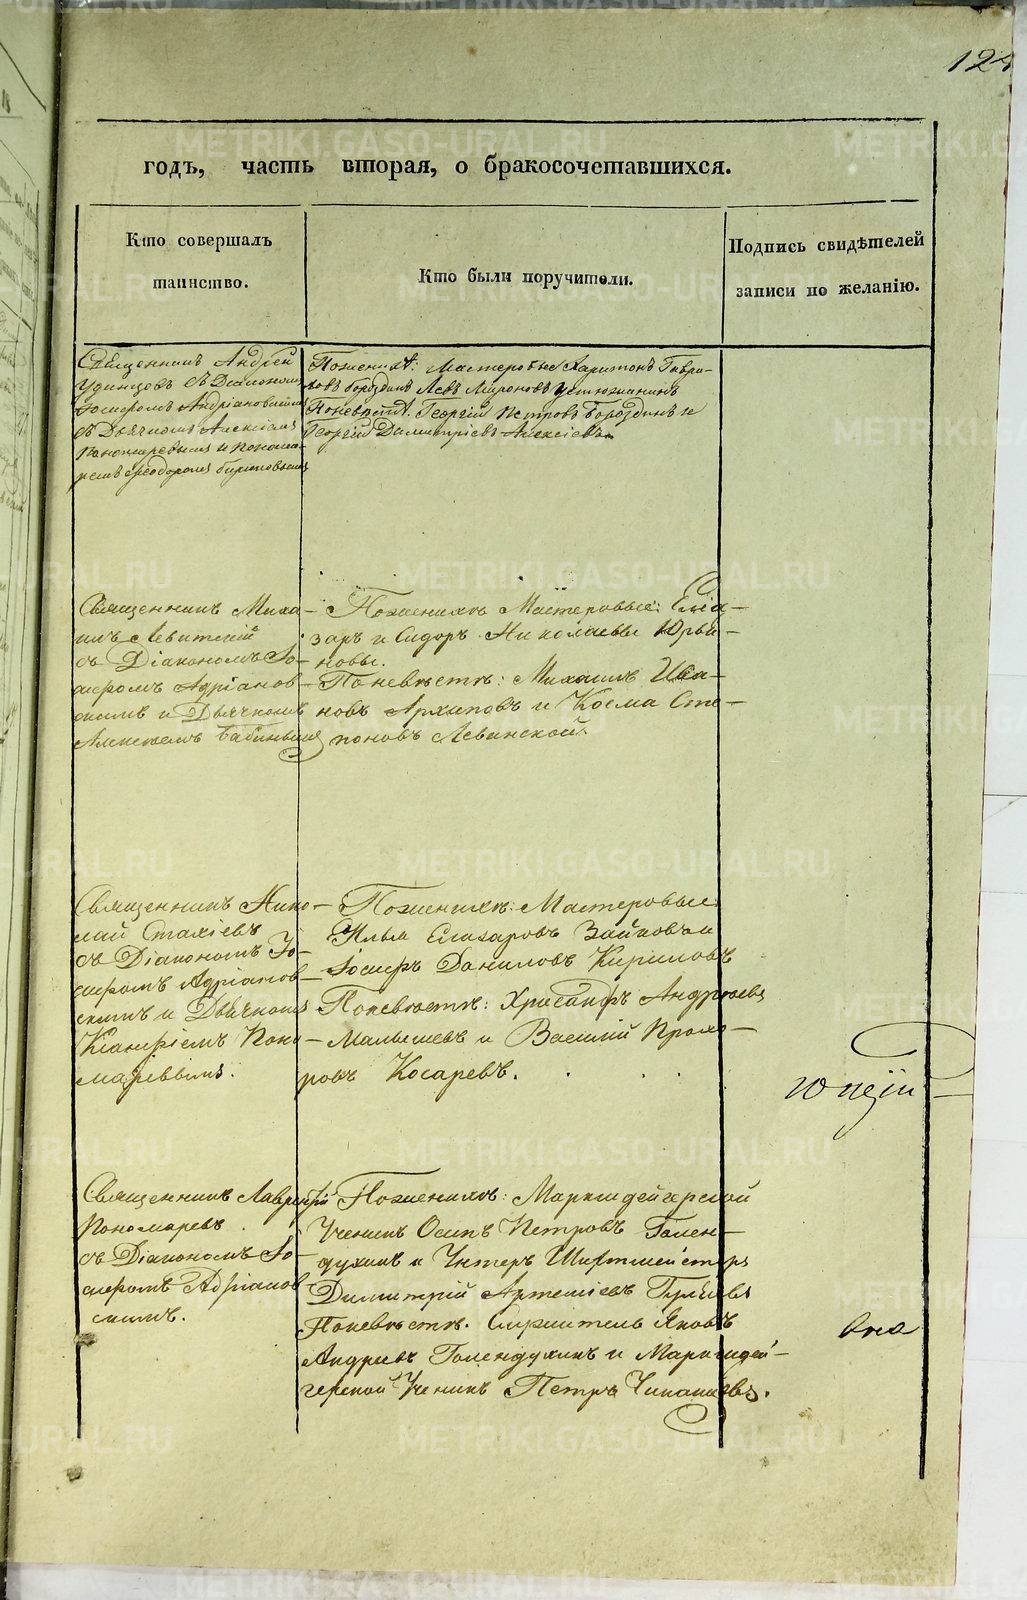 124
годъ, часть вторая, о бракосочетавшихся.
Кто совершалъ
таинство.
Кто были поручители.
Подпись свидѣтелей
записи по желанію.
Священникъ Андрей
Удинцовъ съ Діакономъ
Іосифомъ Андріановскимъ
съ Дьячкомъ Алексѣемъ
и понома-
ремъ Ѳеодоромъ
По женихѣ: Мастеровые Харитонъ Гаври-
ловъ Бороздинъ Левъ Мироновъ Устюжанинъ
По невѣстѣ: Георгій Петровъ Бороздинъ и
Георгій Димитріевъ Алексѣевъ.
Священникъ Миха-
илъ Левитскій
съ Діакономъ Іо-
сифомъ Адріанов-
скимъ и Дьячкомъ
Алексѣемъ Бабинымъ
По женихѣ Мастеровые: Еліа-
заръ и Сидоръ Николаевы Юрьи-
новы.
По невѣстѣ: Михаилъ Ива-
новъ Архиповъ и Косма Сте-
поновъ Левинской.
Священникъ Нико-
лай Стахіевъ
съ Діакономъ Іо-
сифомъ Адріанов-
скимъ и Дьячкомъ
Ксанфіемъ Поно-
маревымъ.
По женихѣ: Мастеровые
Илья Елизаровъ Зайковъ и
Іосифъ Даниловъ Кириловъ
По невѣстѣ: Хрисанфъ Андреевъ
Малышевъ и Василій Прохо-
ровъ Косаревъ.
Священникъ Лаврентій
Пономаревъ
съ Діакономъ Іо-
сифомъ Адріанов-
скимъ.
По женихѣ: Маркшейдерской
Ученикъ Осипъ Петровъ Голен-
духинъ и Унтеръ Шихтмейстеръ
Димитрій Артеміевъ
По невѣстѣ. Служитель Яковъ
Андреевъ Голендухинъ и Маркшей-
дерской Ученикъ Петръ